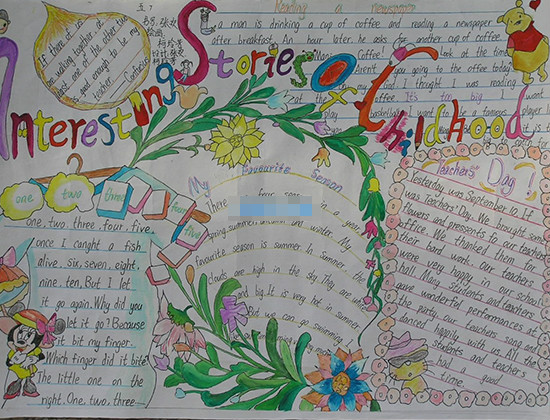 Interesting Stories of Childhood
If there at is
me walking together at
least one of the other two
is good enough to be my
teacher. — Confucius
五.7
Reading a newspaper
a man is drinking a cup of coffee and reading a newspaper
after breakfast. An hour later, he asks for another cup of coffee.
Coffee! Look at the time!
Aren't you going to the office today
I thought I was reading
at the office. It's too big I want
play basketball. I want to be a famous player
one two three four five
one, two, three, four, five,
once I canght a fish
alive. Six, seven, eight,
nine, ten, But I let
it go again. Why did you
let it go? Because
it bit my finger.
Which finger did it bite
The little one on the
right. One, two, three
My Favourite Season
There four in a year,
spring, summer, autumn and winter. My
favourite season is summer. In summer, the
clouds are high in the sky. They are
and big. It is very hot in summer.
But we can go swimming
Teachers' Day!
Yesterday was September 10. It
was Teachers' Day. We brought some
flowers and presents to our teachers
office. We thanked them for
their hard work. Our teachers
were very happy in our school
hall. Many students and teachers
gave wonderful performances at
the party. Our teachers sang and
danced happily with us. All the
students and teachers
had a good
time.